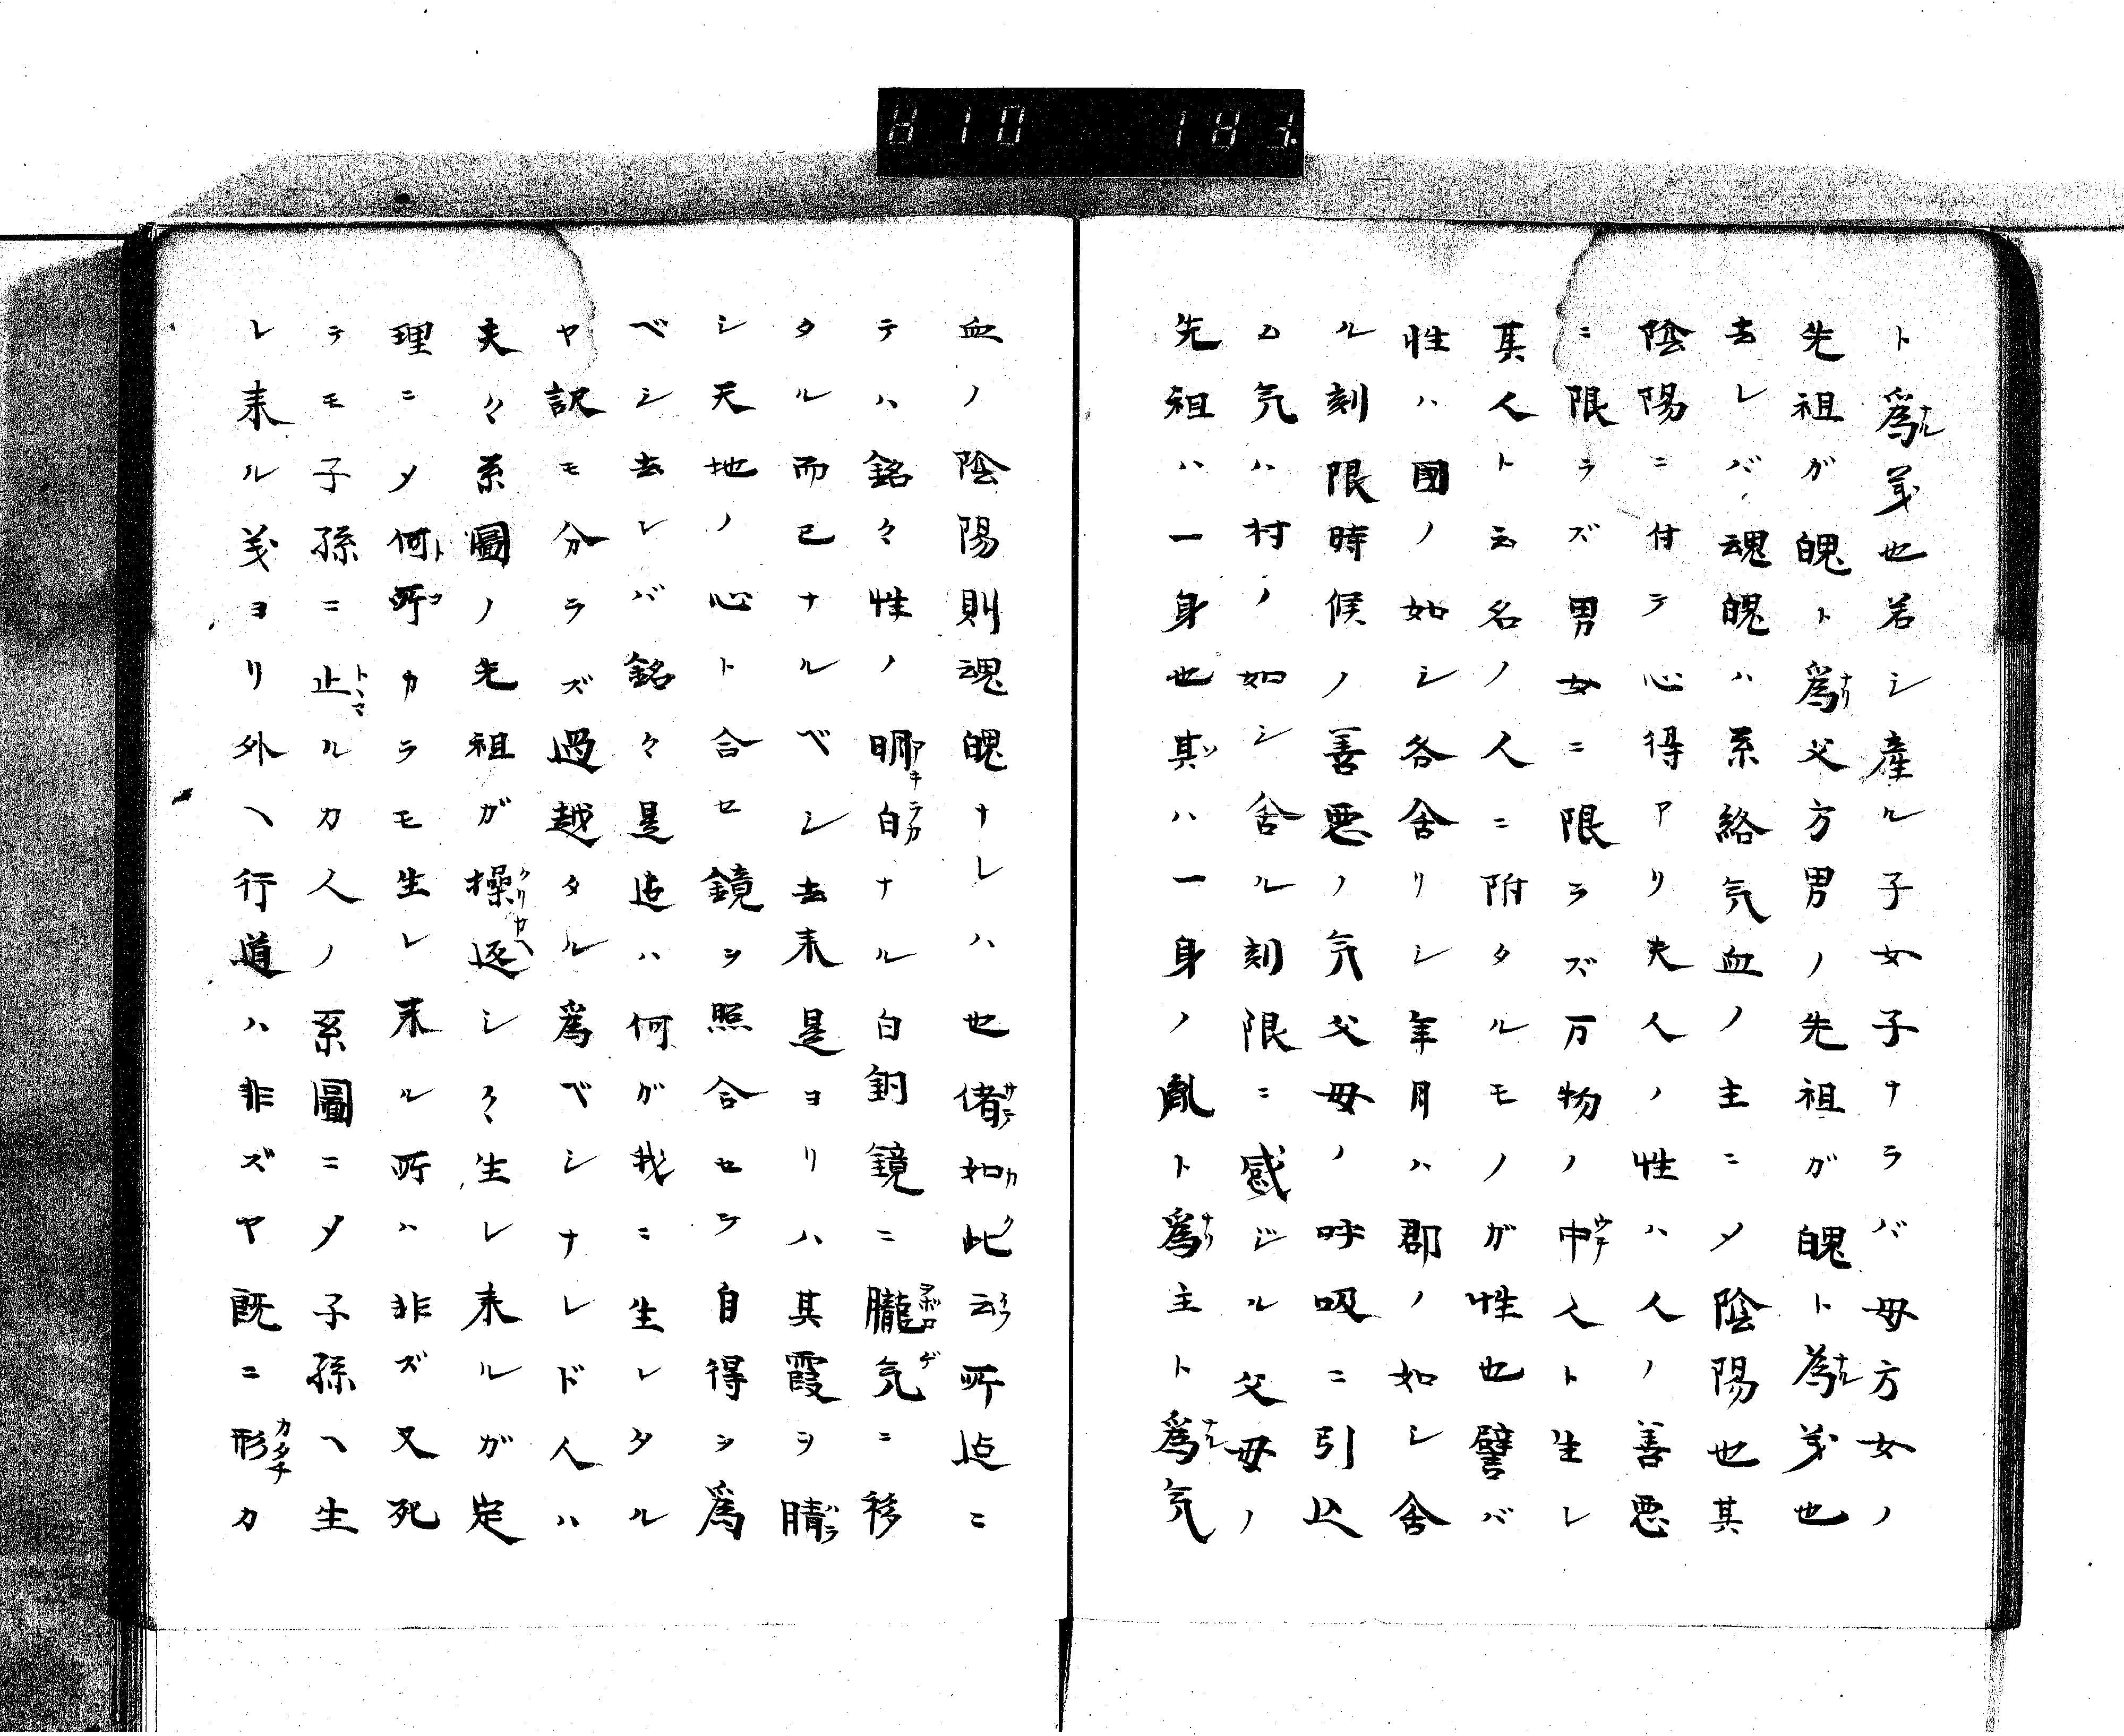 ト爲ナル義也若シ産ル子女子ナラバ母方女ノ
先祖ガ魄ト爲ナリ父方男ノ先祖ガ魄ト爲ナル義也
去レバ魂魄ハ系絡気血ノ主ニメ陰陽也其
陰陽ニ付テ心得アリ夫人ノ性ハ人ノ善悪
ニ限ラズ男女ニ限ラズ万物ノ中ウチ人ト生レ
其人ト云名ノ人ニ附タルモノガ性也譬バ
性ハ國ノ如シ各舍リシ年月ハ郡ノ如シ舍
ル刻限時候ノ善悪ノ気父母ノ呼吸ニ引込
ム気ハ村ノ如シ舍ル刻限ニ感ジル父母ノ
先祖ハ一身也其ソハ一身ノ胤ト爲ナリ主ト爲ナル気
血ノ陰陽則魂魄ナレハ也偖サテ如カ此ク云イフ所迠ニ
テハ銘々性ノ明アキ白ラカナル白銅鏡ニ朧ヲボロ気ゲニ移
タル而已ナルベシ去来是ヨリハ其霞ヲ晴ハラ
シ天地ノ心ト合セ鏡ヲ照合セテ自得ヲ爲
ベシ去レバ銘々是迠ハ何ガ我ニ生レタル
ヤ訳モ分ラズ過越タル爲ベシナレド人ハ
夫々系圖ノ先祖ガ操クリ返カヘシ々生レ来ルガ定
理ニメ何ト所コカラモ生レ来ル所ハ非ズ又死
テモ子孫ニ止トヽマルカ人ノ系圖ニメ子孫ヘ生
レ来ル義ヨリ外ヘ行道ハ非ズヤ既ニ形カタチカ